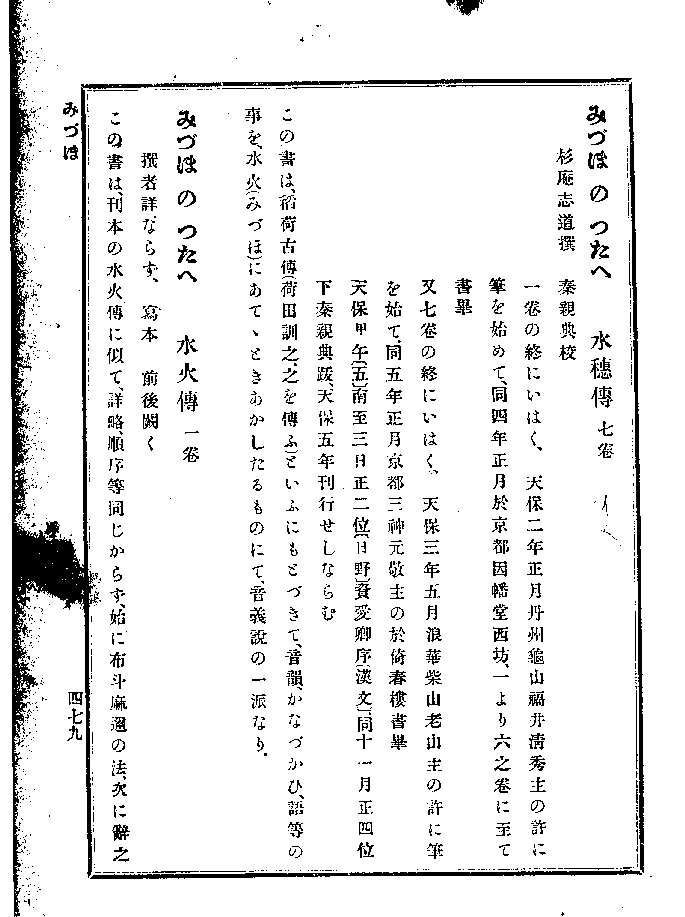 みづほのつたへ 水穗傳 七卷
杉庵志道撰 秦親典校
一卷の終にいはく、天保二年正月丹州龜山福井淸秀主の許に
筆を始めて、同四年正月於京都因幡堂西坊、一より六之卷に至て
書畢
又七卷の終にいはく、天保三年五月浪華柴山老山主の許に筆
を始て、同五年正月京都三神元敬主の於倚春樓書畢
天保甲午(五)南至三日正二位(日野)資愛卿序(漢文)同十一月正四位
下秦親典跋、天保五年刊行せしならむ
この書は、稻荷古傳(荷田訓之、之を傳ふ)といふにもとづきて、音韻、かなづかひ、語等の
事を、水火(みづほ)にあてゝときあかしたるものにて、音義說の一派なり、
みづほのつたへ 水火傳 一卷
撰者詳ならず、寫本 前後闕く
この書は、刊本の水火傳に似て、詳略、順序等同じからず、始に布斗麻邇の法、次に辭之
みづほ
四七九